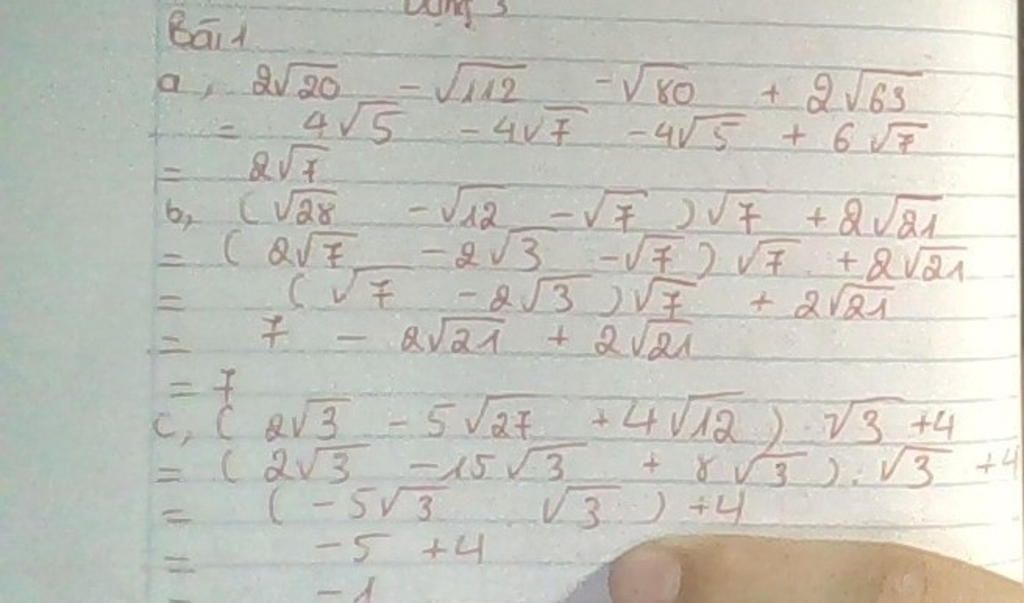 Dạng 3
Bài 1
a, 2√20 - √112 - √80 + 2√63
= 4√5 - 4√7 - 4√5 + 6√7
= 2√7
b, (√28 - √12 - √7)√7 + 2√21
= (2√7 - 2√3 - √7)√7 + 2√21
= (√7 - 2√3)√7 + 2√21
= 7 - 2√21 + 2√21
= 7
c, (2√3 - 5√27 + 4√12) . √3 + 4
= (2√3 - 15√3 + 8√3) . √3 + 4
= (-5√3 √3) + 4
= -5 + 4
= -1